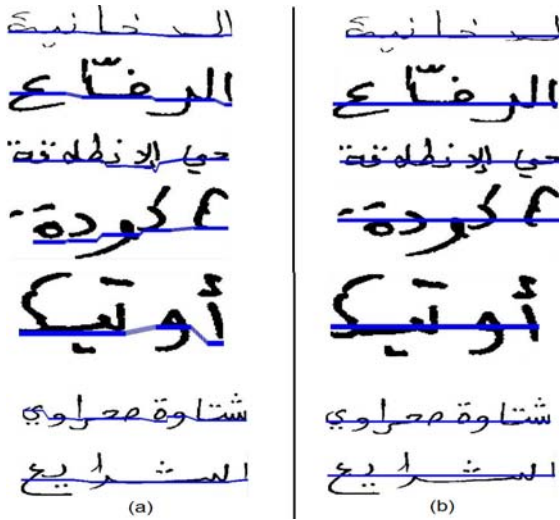 الدخانية
حي الإنطلاقة
أكودة
أوتيك
شتاوة صحراوي
الشرايع
(a)
الدخانية
حي الإنطلاقة
أكودة
أوتيك
شتاوة صحراوي
الشرايع
(b)